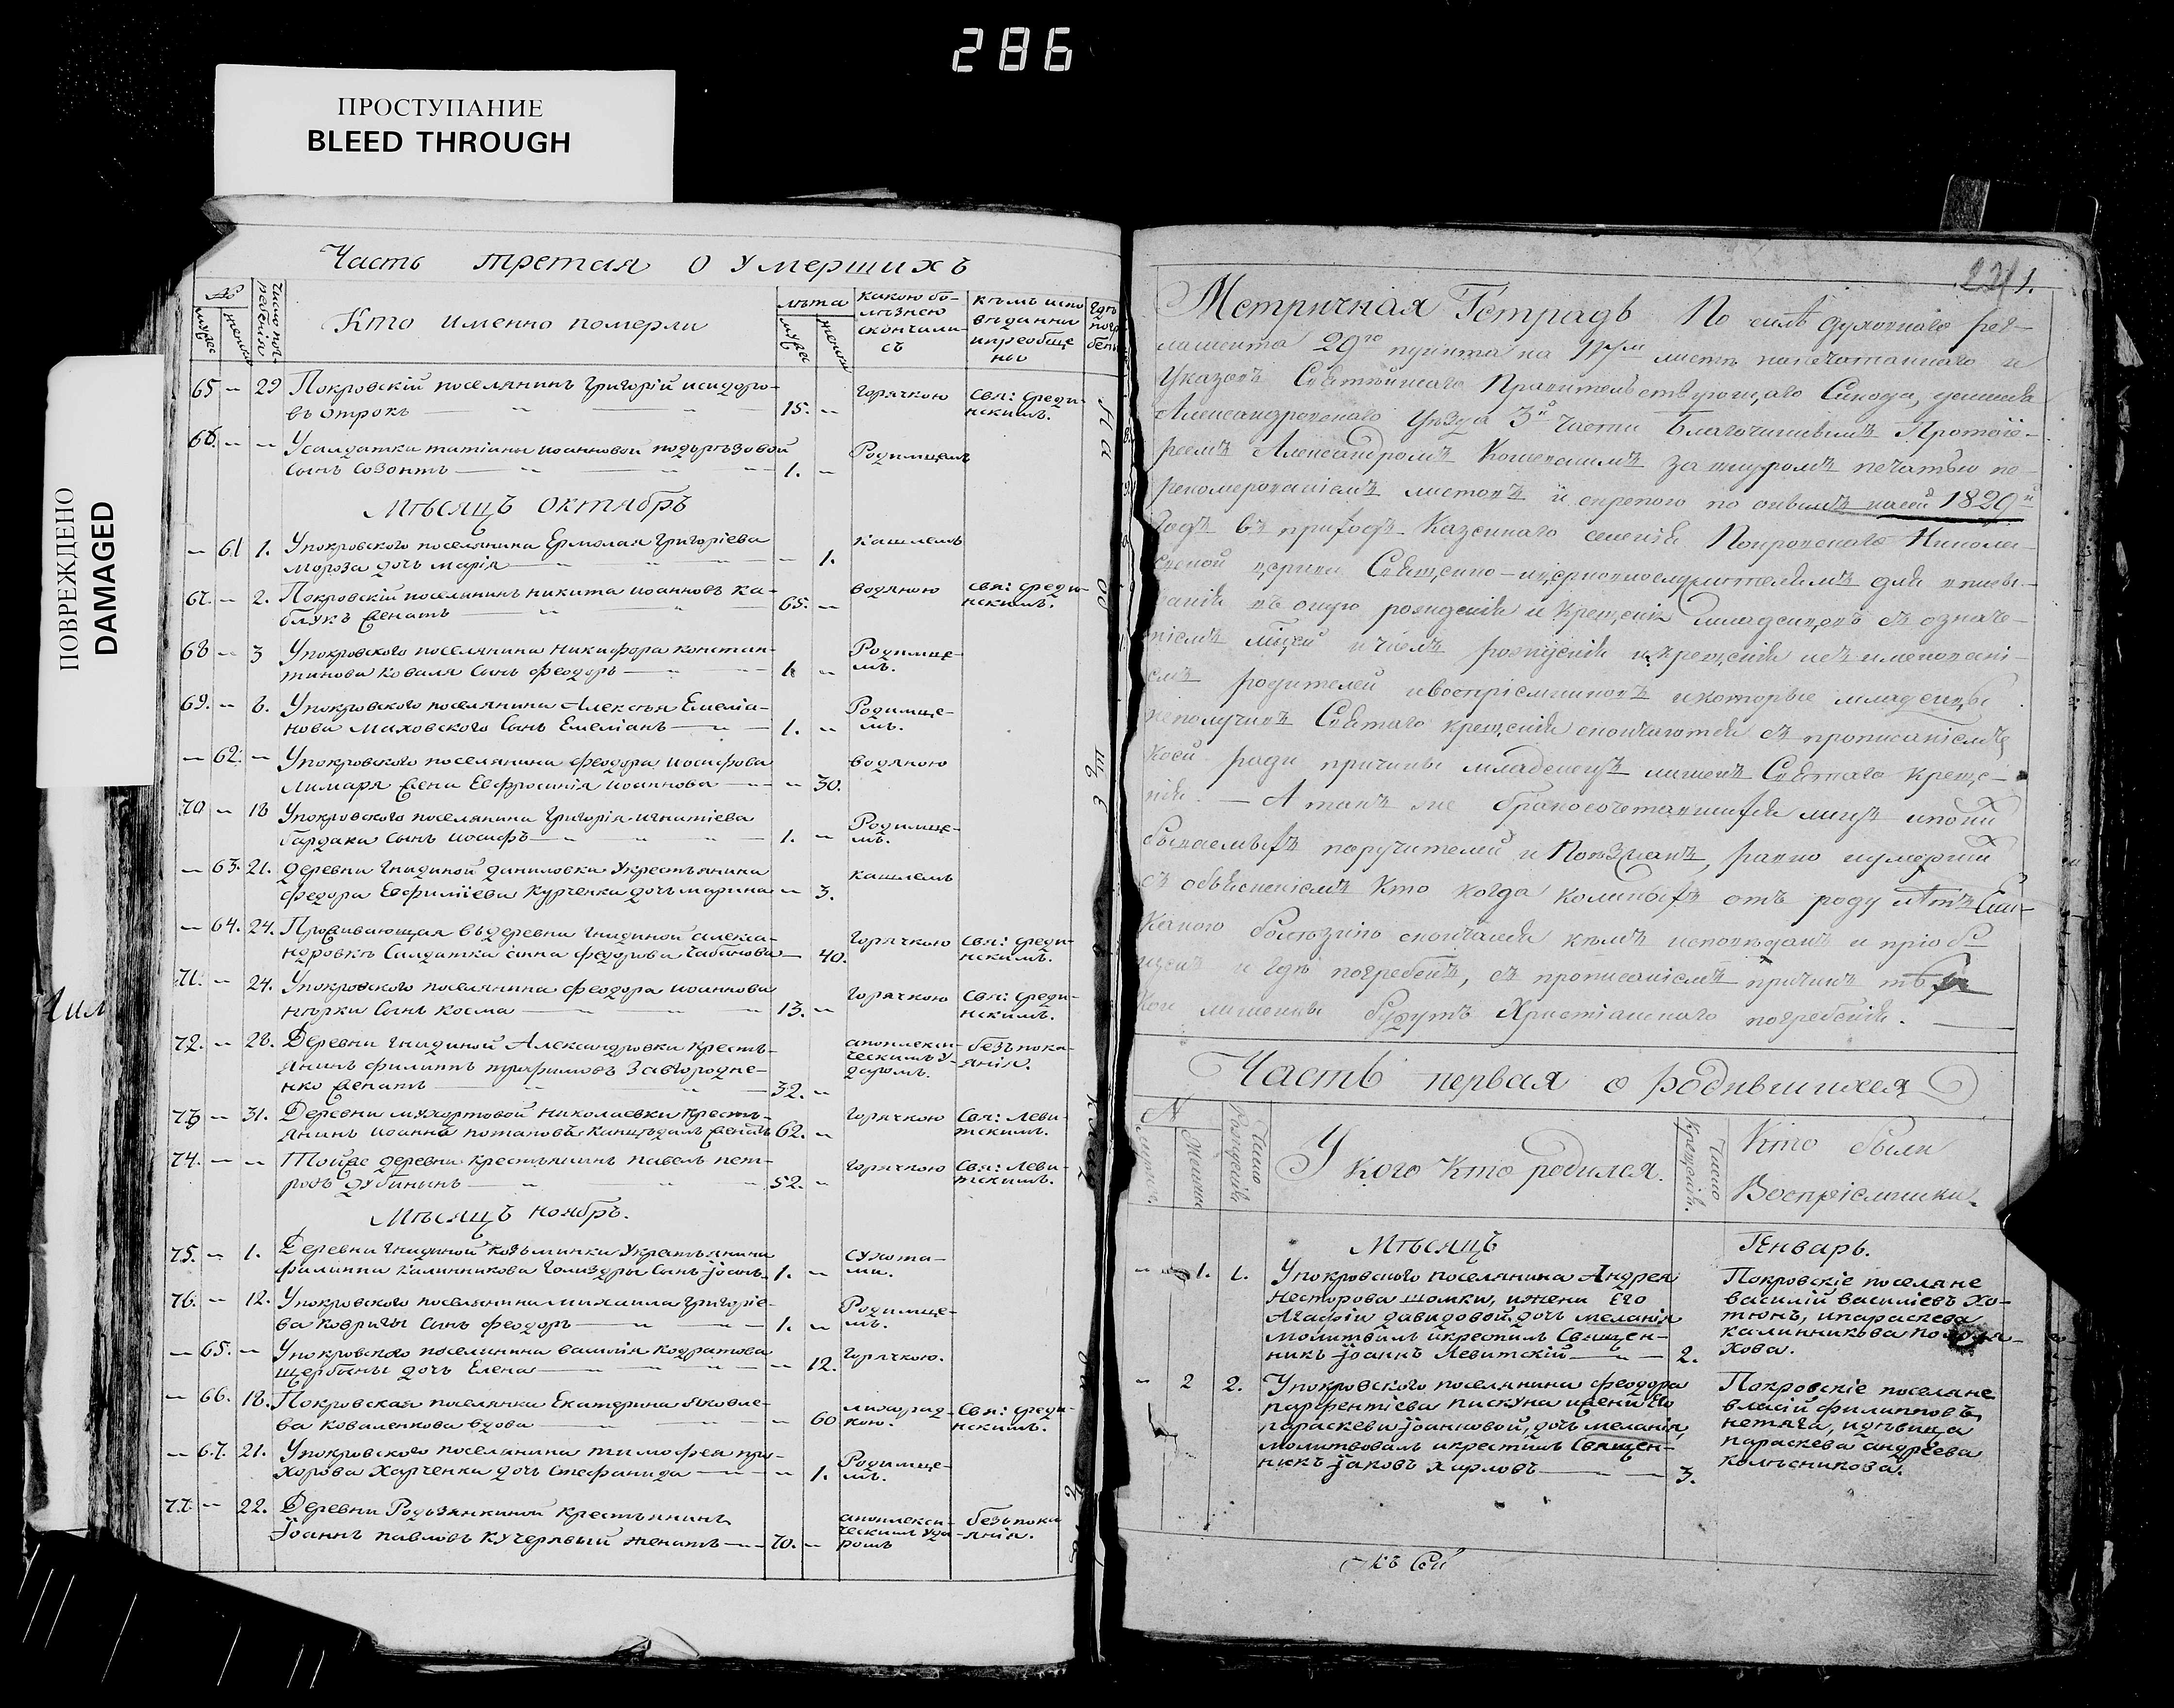 286
ПРОСТУПАНИЕ
BLEED THROUGH
ПОВРЕЖДЕНО
DAMAGED
Часть третая о умершихъ
№ Число погребенія Кто именно померли лѣта какою болѣзнею скончались кѣмъ исповѣданны и пріобщены Гдѣ погребены
мужес женска мужес женска
65 — 29 Покровскій поселянинъ Григорій исидоро-
въ отрокъ 15. — Горячкою Свя: Среди-
нскимъ.
66. — — У салдатки татіаны иоанновой
сынъ Созонтъ 1. — Родимцемъ
Мѣсяцъ Октябрь
— 61 1. У покровского поселянина Ермолая Григоріева
мороза дочь марія — 1. кашлемъ
67. — 2. Покровскій поселянинъ никита иоанновъ ка-
блукъ женатъ 65. — водяною Свя: Среди-
нскимъ.
68 — 3 У покровского поселянина никифора констан-
тинова коваля сынъ феодоръ 1. — Родимце-
мъ.
69. — 6. У покровского поселянина Алексѣя Емеліа-
нова маховского сынъ Емеліанъ 1. — Родимце-
мъ.
— 62. — У покровского поселянина феодора иосифова
лимаря жена Евфросинія иоаннова — 30. водяною
70 — 18 У покровского поселянина Григорія игнатіева
бардаки сынъ иосифъ 1. — Родимце-
мъ.
— 63. 21. деревни Гнидиной даниловки у крестьянина
федора Евфиміева Курченка дочь марина — 3. кашлемъ
— 64. 24. Проживающая въ деревни Гнидиной алекса-
ндровкѣ Салдатка федорова Чабанова — 40. Горячкою Свя: Среди-
нскимъ.
71. — 24. У покровского поселянина феодора иоаннова
сынъ косма 13. — Горячкою Свя: Среди-
нскимъ.
72. — 28. Деревни Гнидиной Александровки кресть-
янинъ филиппъ трофимовъ Завгородне-
нко женатъ 32. — апоплекси-
ческимъ у-
даромъ. безъ пока-
янія.
73 — 31. Деревни мухортовой николаевки кресть-
янинъ иоаннъ потаповъ женатъ 62. — Горячкою Свя: Леви-
тскимъ.
74. — — Той же деревни крестьянинъ павелъ пет-
ровъ дубининъ 52. — Горячкою Свя: Леви-
тскимъ.
Мѣсяцъ ноябрь.
75. — 1. Деревни Гнидиной козьминки у крестьянина
филиппа калинникова сынъ іоаннъ 1. — сухота-
ми.
76. — 12. У покровского поселянина михаила григоріе-
ва ковриги сынъ феодоръ 1. — Родимце-
мъ.
— 65. — У покровского поселянина василія кодратова
щербины дочь Елена — 12. Горячкою.
— 66. 18. Покровская поселянка Екатерина яковле-
ва коваленкова вдова — 60 лихорад-
кою. Свя: Среди-
нскимъ.
— 67. 21. У покровского поселянина тимофея про-
хорова Харченка дочь Стефанида — 1. Родимце-
мъ.
77. — 22. Деревни Родзянкиной крестьянинъ
Іоаннъ павловъ кучерявый женатъ 70. — апоплекси-
ческимъ уда-
ромъ безъ пока-
янія.
1.
Метричная Тетрадь По силѣ духовнаго рег-
ламента 29го пункта на листѣ напечатаннаго и
Указовъ Святѣйшаго Правительствующаго Синода, данная
Александровского уѣзда 3й части Благочиннымъ Протоіе-
реемъ Александромъ за шнуромъ печатью пе-
реномерованіемъ листовъ и скрепою по онымъ 1829й
Годъ въ приходъ Казеннаго селенія Покровскаго Никола-
евской церкви Священно-и церковнослужителямъ для вписы-
ванія въ оную рожденія и крещенія младенцовъ съ означе-
ніемъ мѣсяца и числъ рожденія и крещенія и съ именовані-
емъ родителей и воспріемниковъ и которые младенцы
неполучивъ Святаго крещенія скончаются съ прописаніемъ
коей ради причины младенецъ лишенъ Святаго креще-
нія. — А такъ же бракосочетавшихся лицъ и при
бываемыхъ поручителей и Поѣзжанъ, равно и умершихъ
съ объясненіемъ Кто когда коликихъ отъ роду лѣтъ
Какою болѣзнію скончался кѣмъ исповѣданъ и пріоб-
щенъ и гдѣ погребенъ, съ прописаніемъ причинъ
Кои лишены будутъ Христіанскаго погребенія.
Часть первая о родившихся
№ мужес. женска Число Рожденія У кого кто родился. Число Крещенія. Кто были
Воспріемники.
Мѣсяцъ Генварь.
— 1. 1. У покровского поселянина Андрея
Несторова шомки, и жени Его
Агафіи давидовой, дочь меланія
молитвилъ и крестилъ Священ-
никъ іоаннъ Левитскій 2.
Покровскіе поселяне
василій василіевъ Хо-
тюнъ, и параскева
калинникова
хова.
— 2 2. У покровского поселянина феодора
парфентіева пискуна и жени Его
параскеви іоанновой, дочь меланія,
молитвовалъ и крестилъ Священ-
никъ іаковъ харловъ 3.
Покровскіе поселяне
власій филипповъ
нетяга, и дѣвица
параскева андреева
колѣсникова.